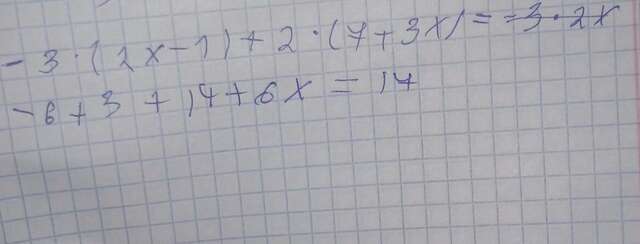 - 3 · (2x - 1) + 2 · (7 + 3x) = -3 · 2x
- 6 + 3 + 14 + 6x = 14